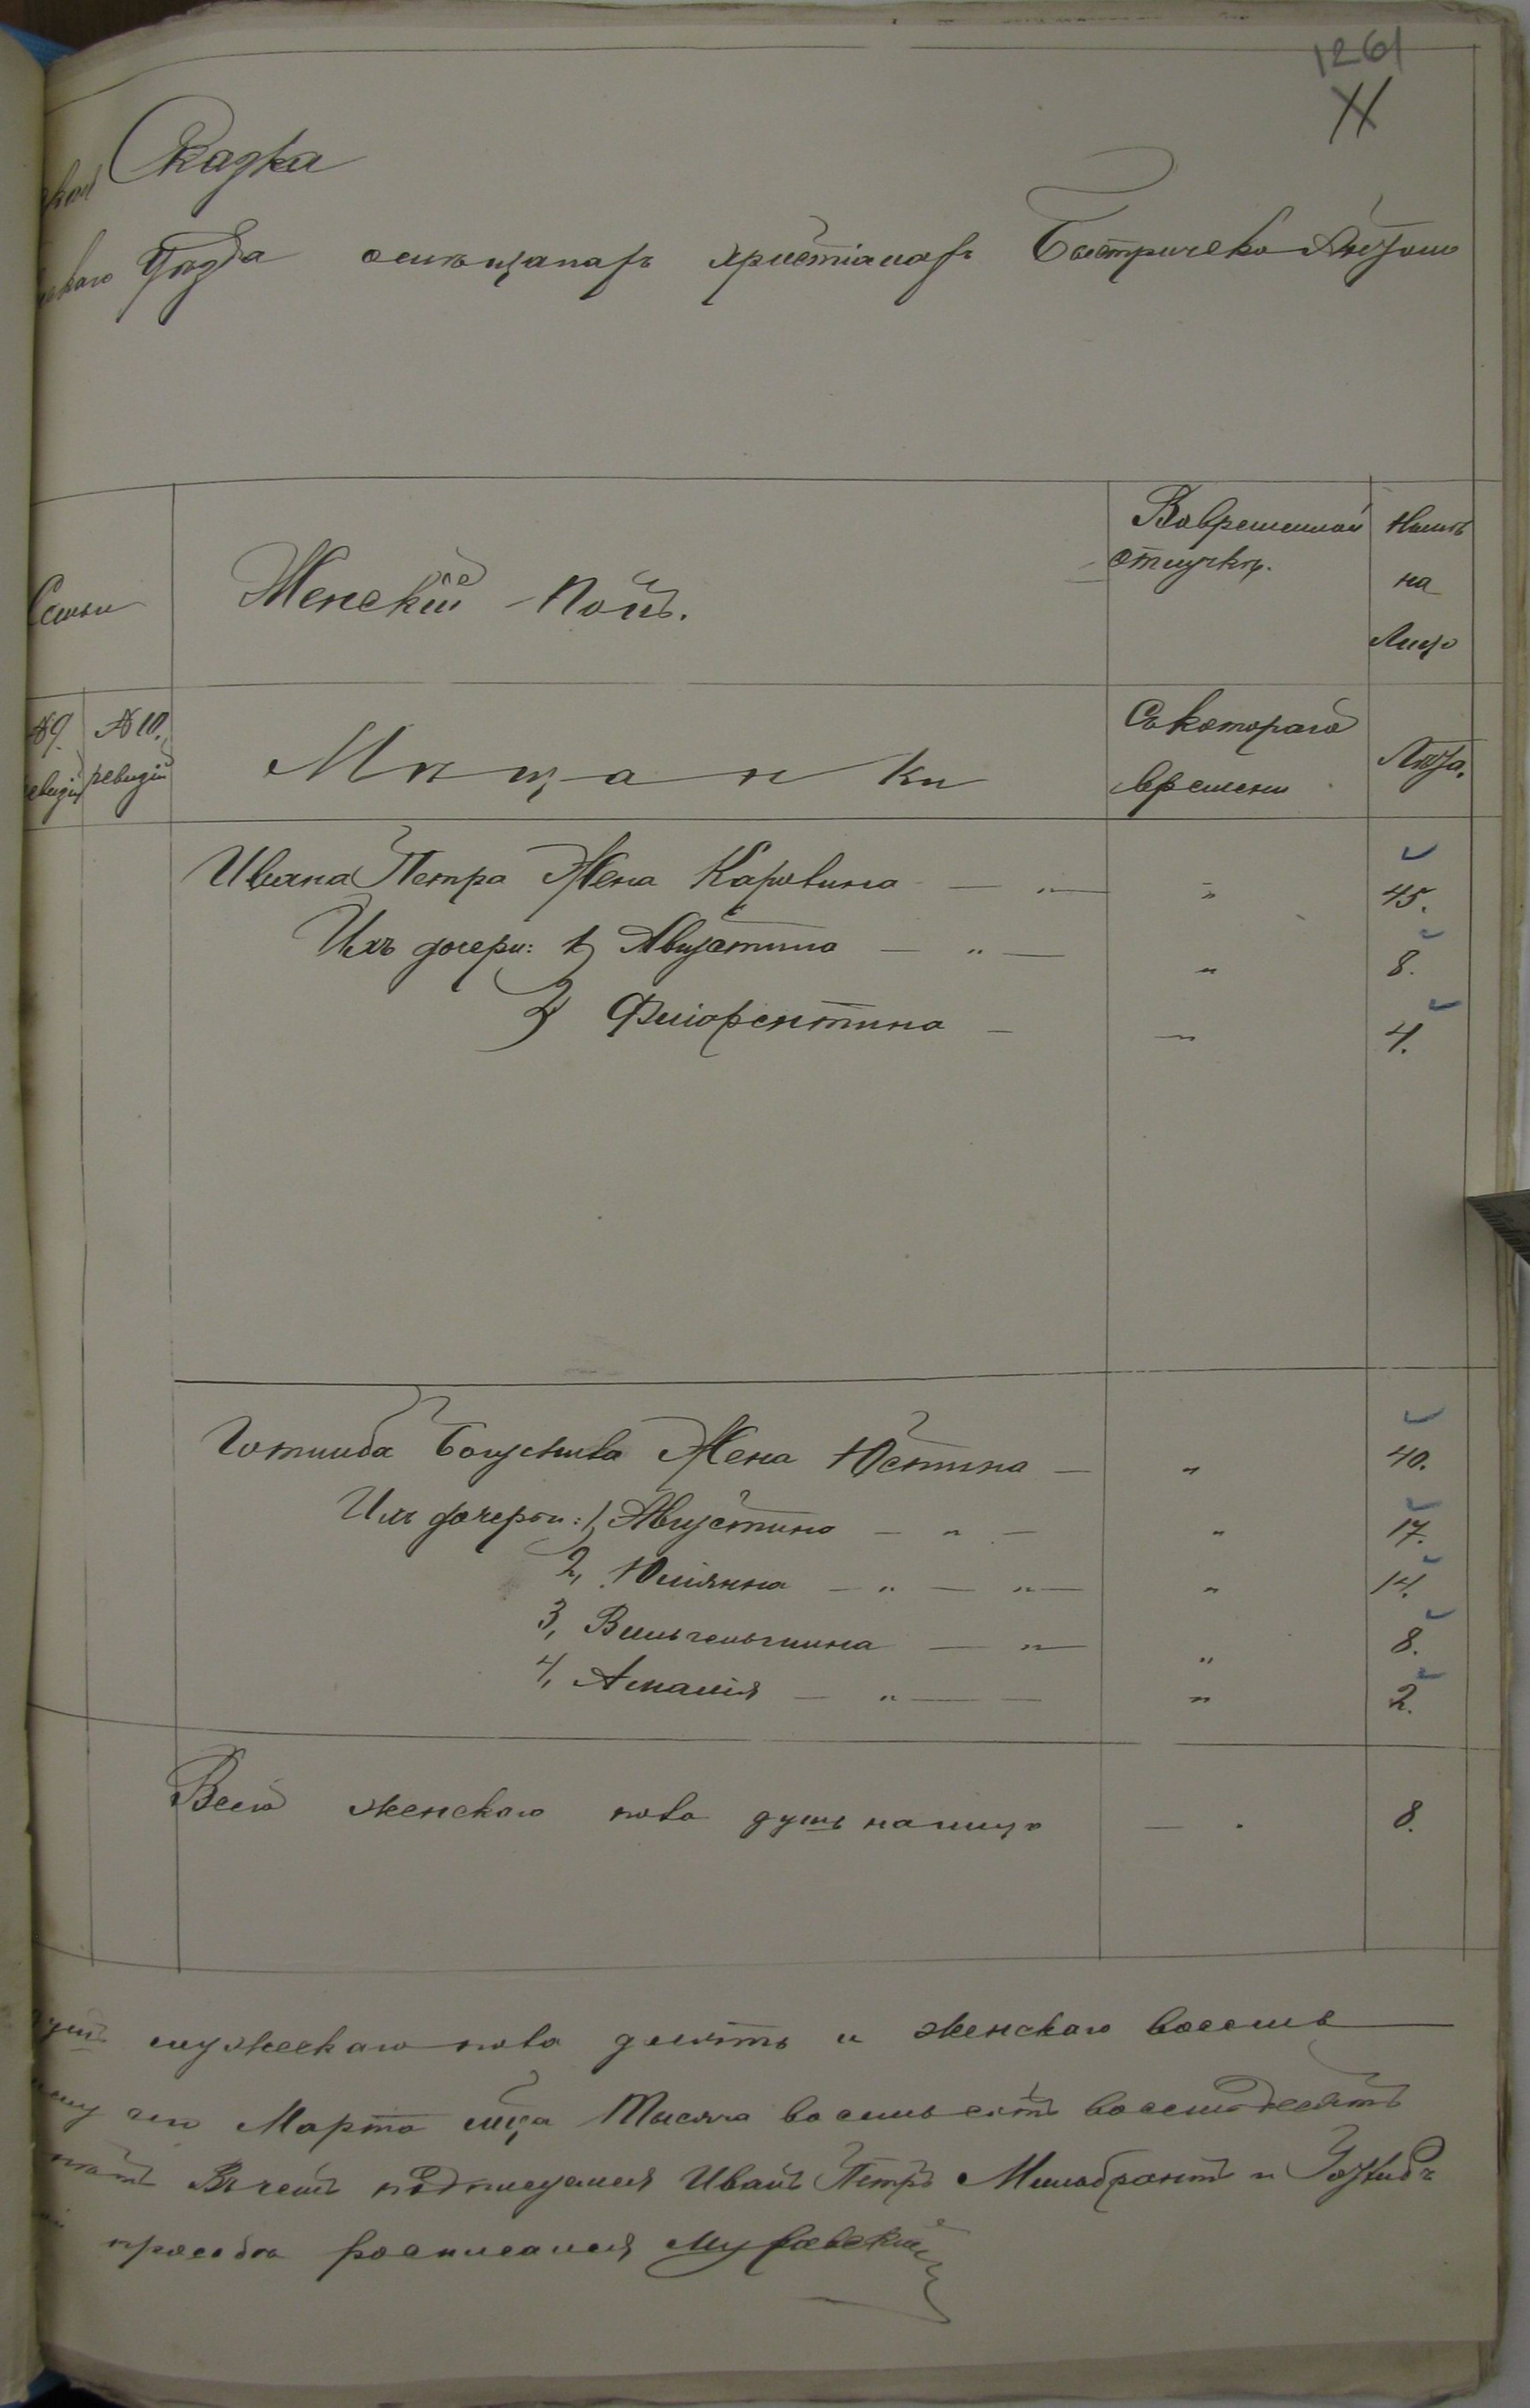 1261
Сказка
Уѣзда о мѣщанахъ христіанахъ
Семьи
Женскій полъ.
Вовременной отлучкѣ.
Нынѣ на Лицо
№ 9. ревизіи
№ 10. ревизіи
Мѣщанки
Съ котораго времени
Лѣта.
Ивана Петра Жена Каролина — " — " 45.
Ихъ дочери: 1) Августина — " — " 8.
2) Флiорентина — " 4.
Готлиба Богуслава Жена Юстина — " 40.
Ихъ дочери: 1, Августина — " — " 17.
2, Юлiянна — " — " — " 14.
3, Вильгельмина — " — " 8.
4, Амалія — " — — " 2.
Всего женскаго пола душъ налицо — . 8.
душъ мужескаго пола десять и женскаго восемь
дня Марта мца Тысяча восемьсотъ восемьдесятъ
Въ чемъ подписуемся Иванъ Петръ Мильбрантъ и Готлибъ
просьбѣ росписался